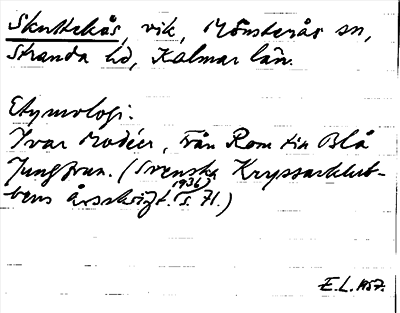 Skuttekås, vik, Mönsterås sn,
Stranda hd, Kalmar län.
Etymologi.
Ivar Modéer, Från Rom till Blå
Jungfrun. (Svenska Kryssarklub-
bens årsskrift. 1936, s. 71.)
E.L. 1957.